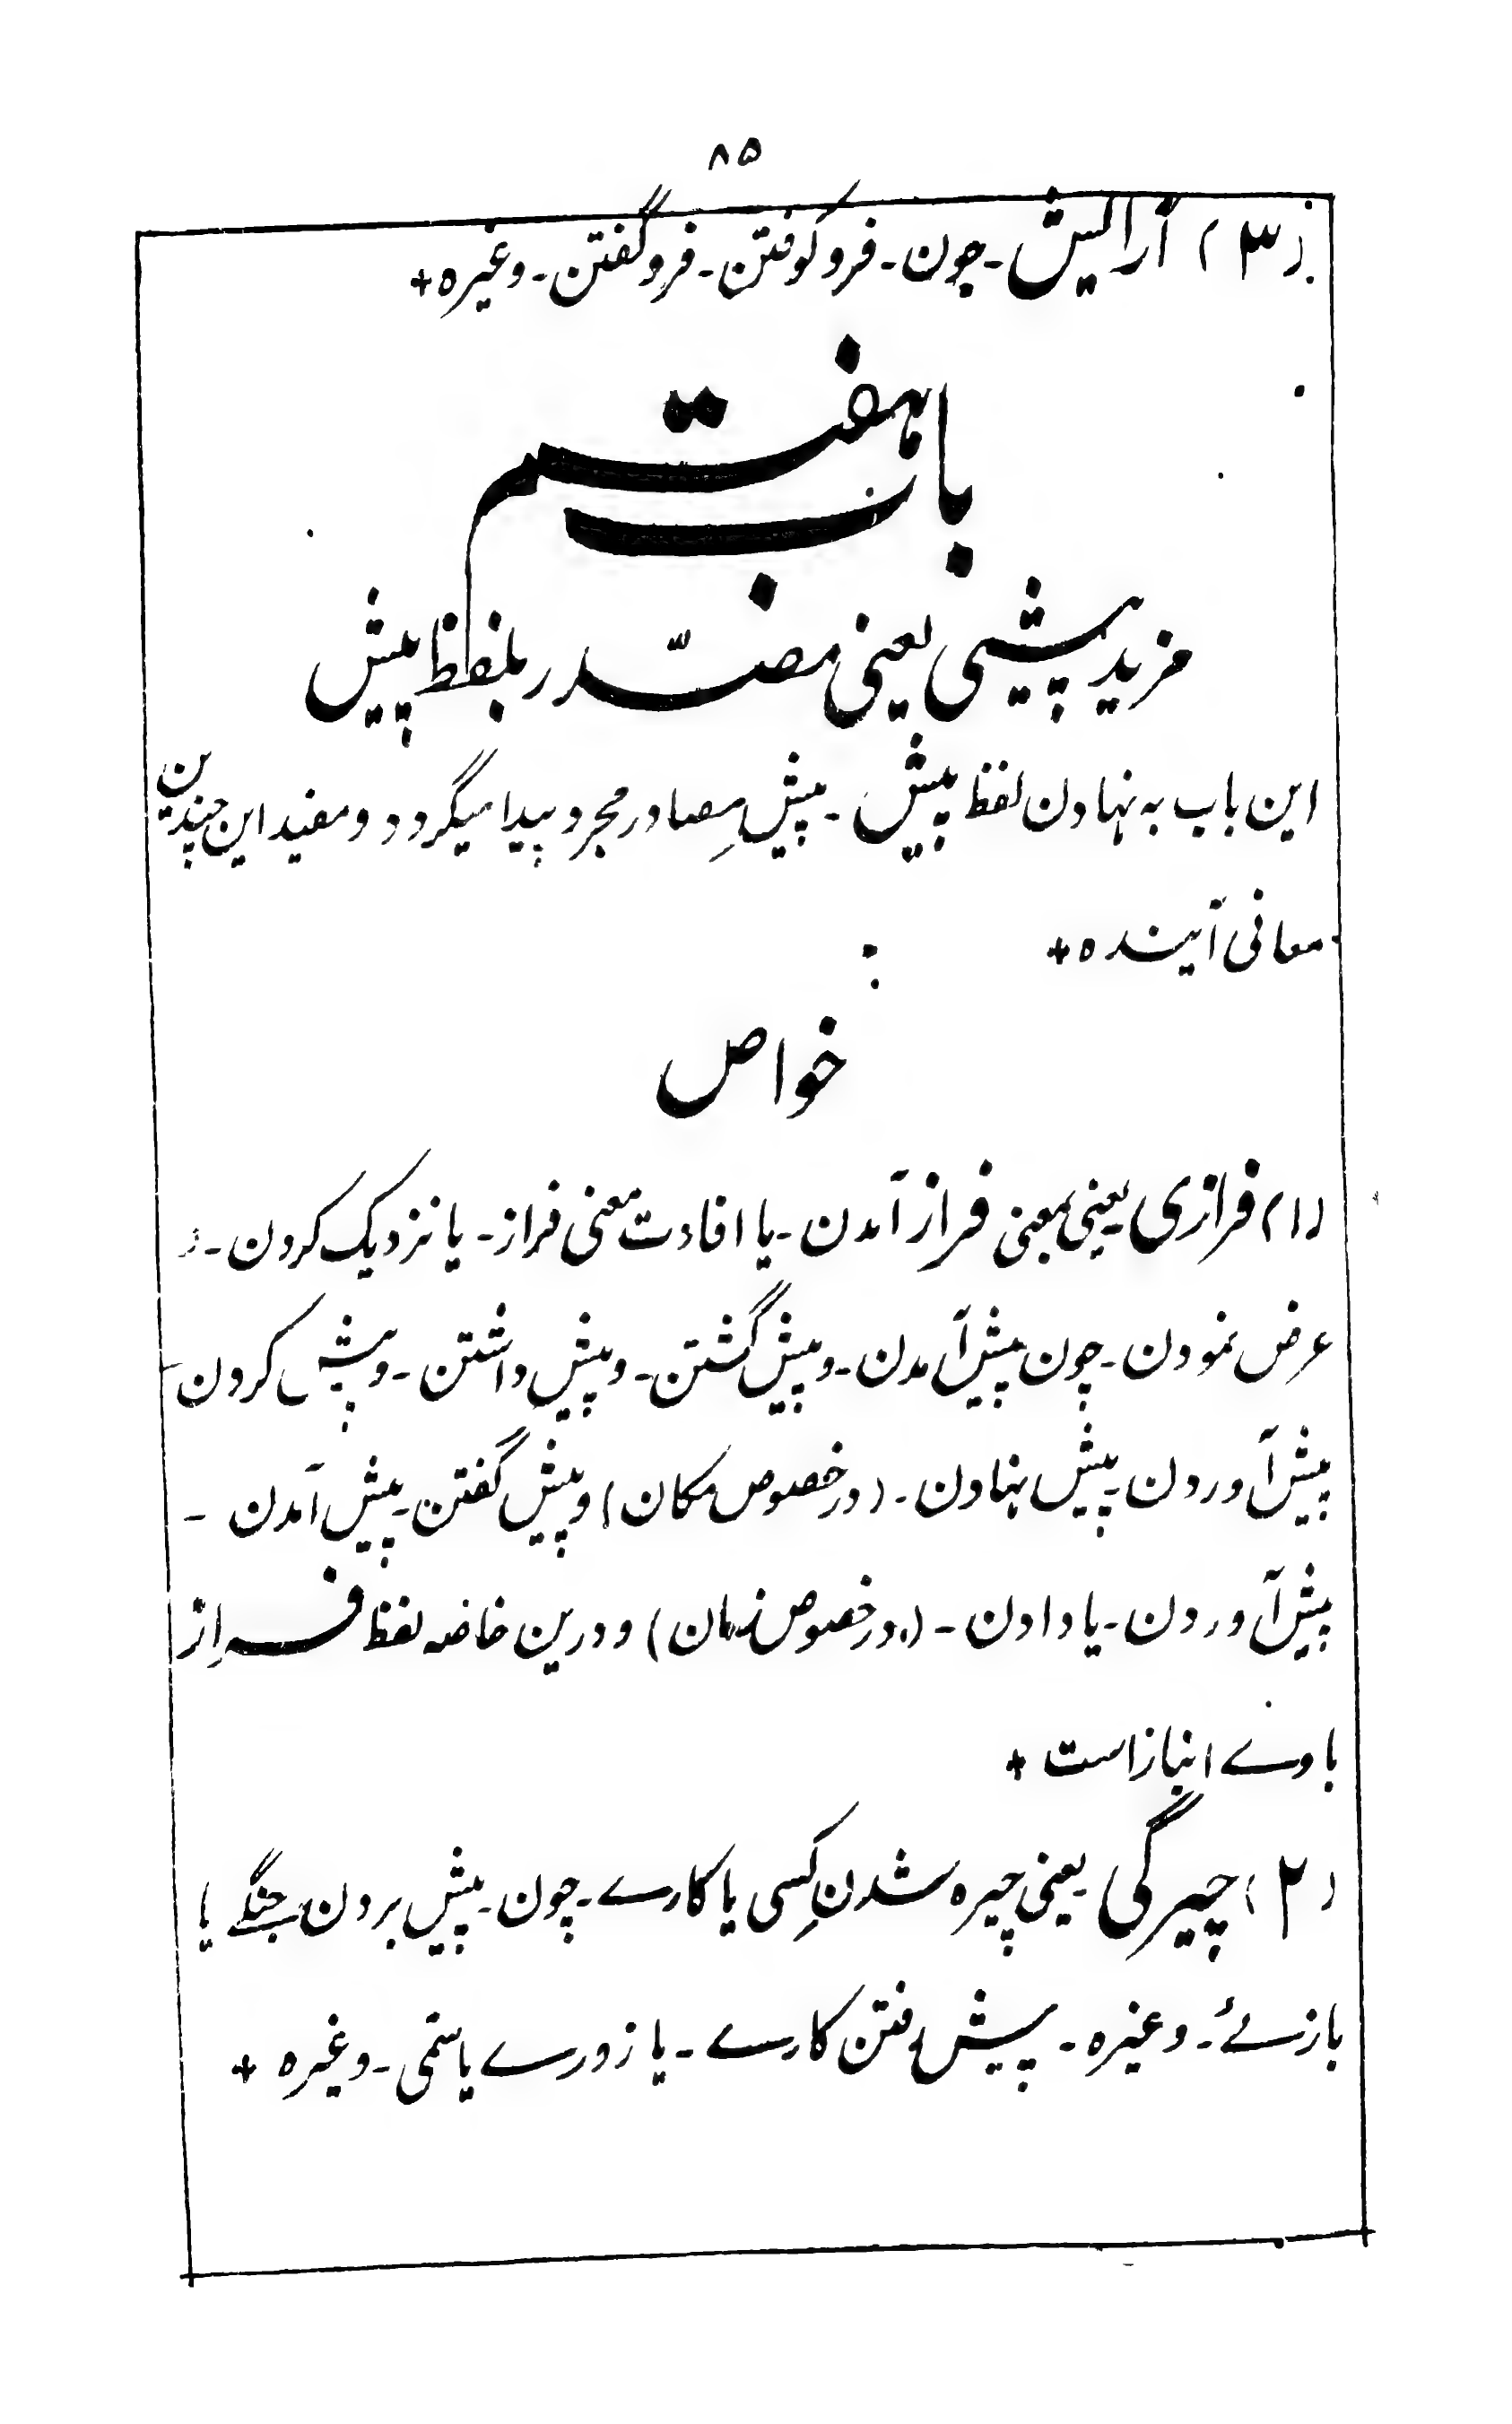 ۸۵
(۳) آرائیش - چون - فروکوفتن - فروگفتن - وغیره +
باب هفتم
مزید پیشی یعنی مصدّر بلفظ پیش
این باب به نهادن لفظ پیش - پیشِ مصادر مجرد پیدا میگردد و مفید این چندین
معانی آینده +
خواص
(۱) فرازی یعنی بمعنی فراز آمدن - یا افادت معنی فراز - یا نزدیک کردن -
عرض نمودن - چون پیش آمدن - و پیش گشتن - و پیش داشتن - و پیش کردن -
پیش آوردن - پیش نهادن - (در خصوص مکان) و پیش گفتن - پیش آمدن -
پیش آوردن - یا دادن - (در خصوص زمان) و درین خاصه لفظ فراز
با وے انباز است +
(۲) چیرگی یعنی چیره شدنِ کسی یا کارے - چون - پیش بردن جنگے یا
بازئے - وغیره - پیش رفتن کارے - یا زورے یا ستمی - وغیره +